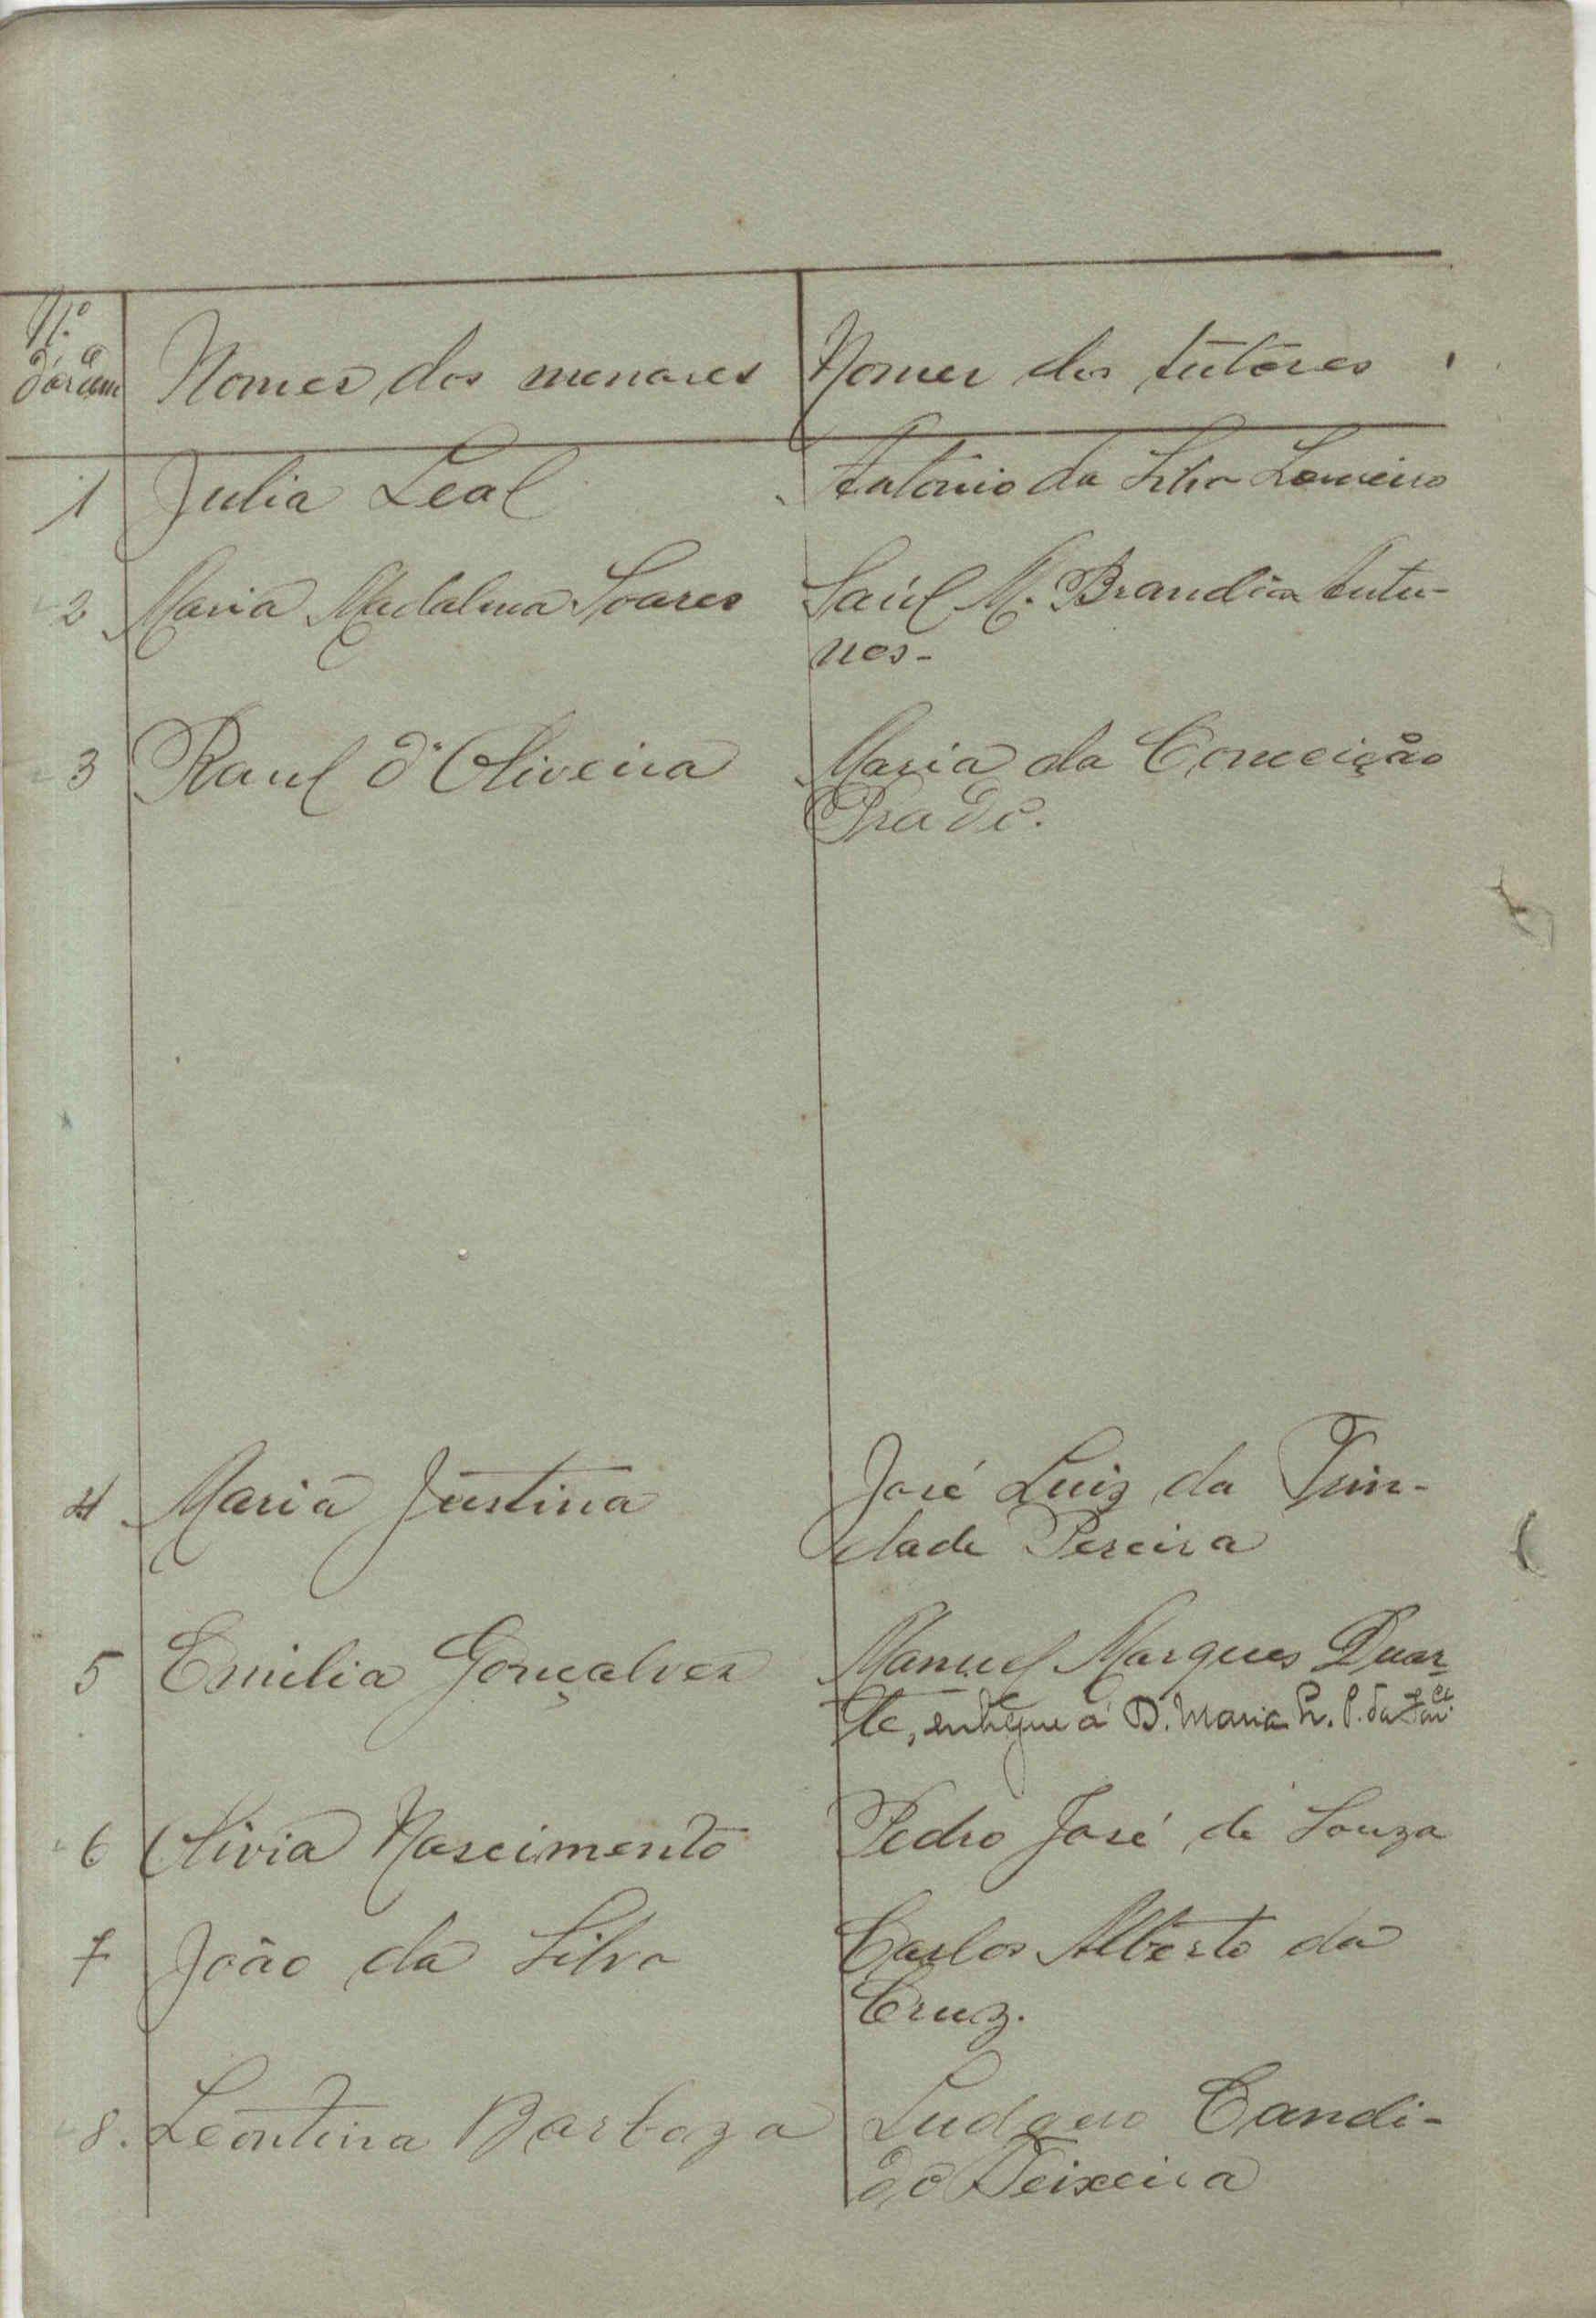 N.º
d'ordem
Nomes dos menores
Nomes dos tutores
1 Julia Leal
Antonio da Silva Loureiro
2 Maria Madalena Soares
Saúl M. Brandão Antu-
nes-
3 Raul d'Oliveira
Maria da Conceição
Prado.
4 Maria Justina
José Luiz da Trin-
dade Pereira
5 Emilia Gonçalves
Manuel Marques Duar-
te, entregue a D. Maria P. da
6 Olivia Nascimento
Pedro José de Souza
7 João da Silva
Carlos Alberto da
Cruz.
8. Leontina Barboza
Ludgero Candi-
do Teixeira